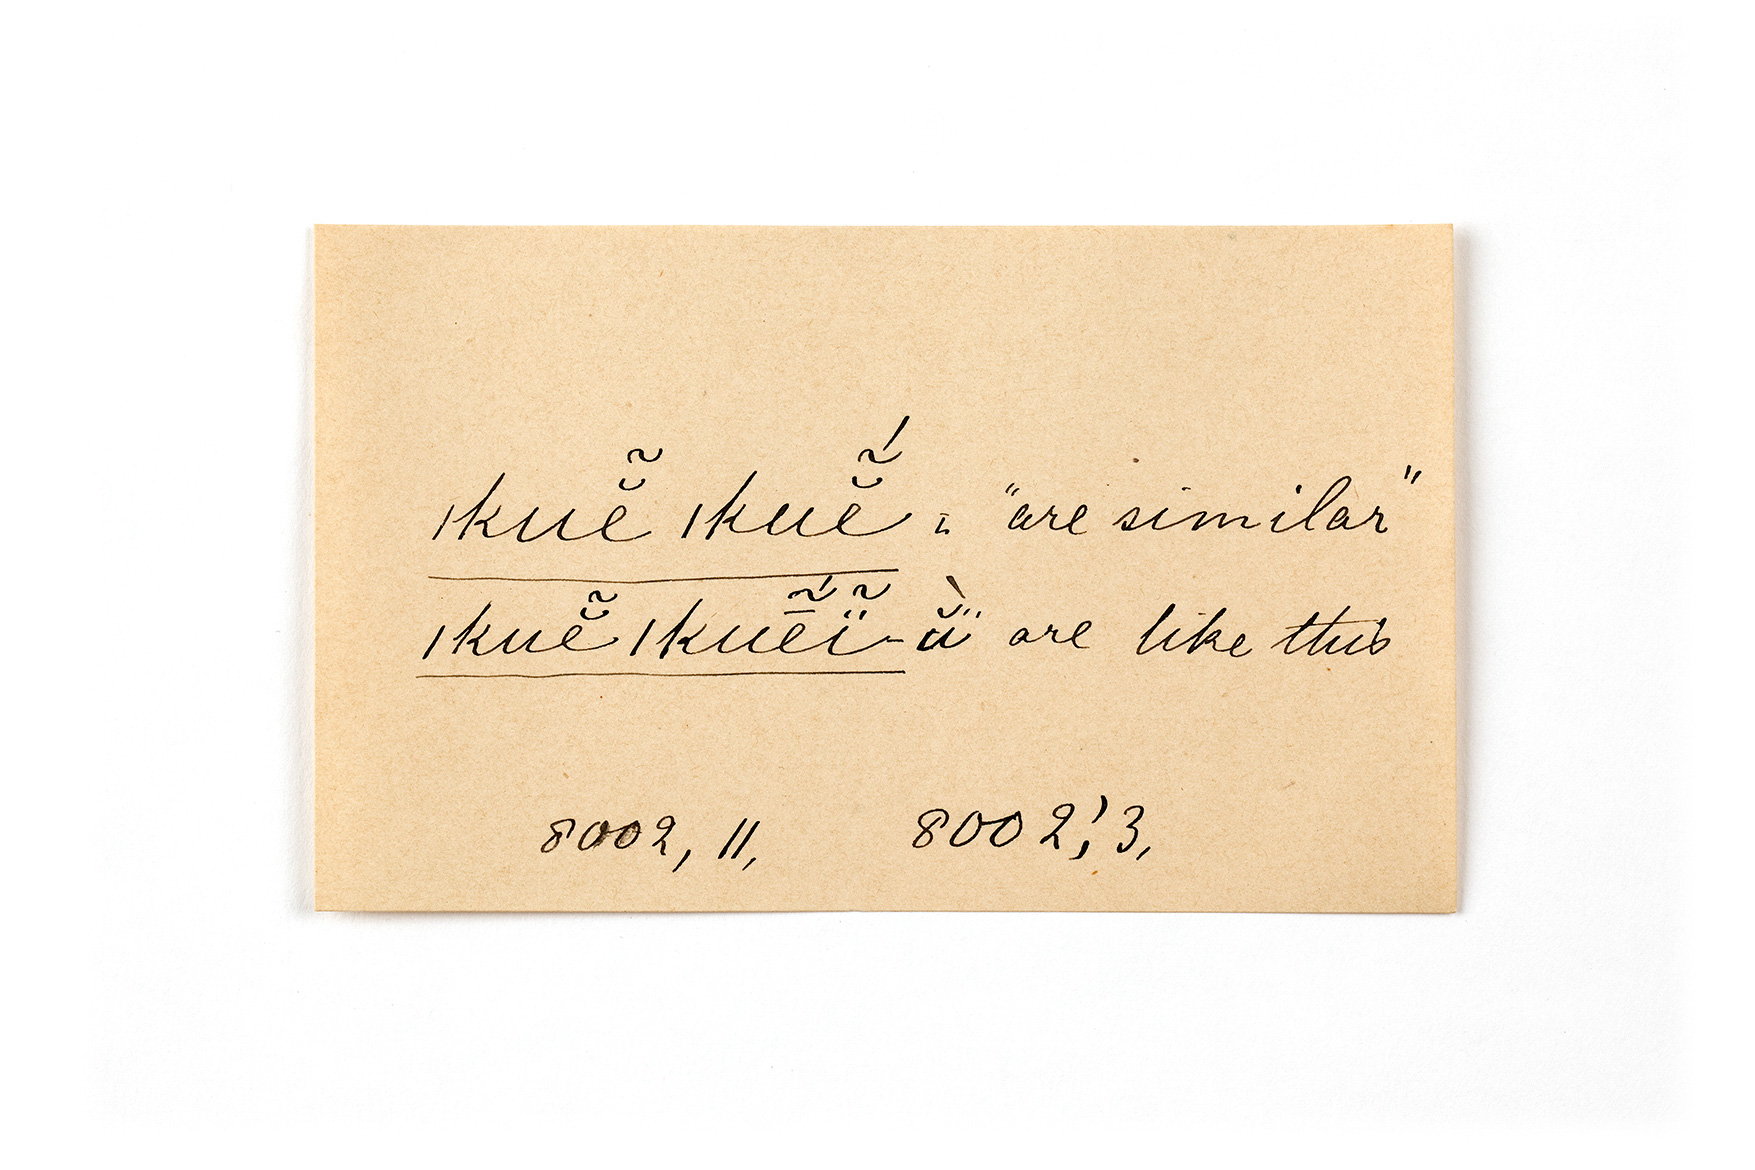 ıkuĕ̃ ıkuĕ̃́ = "are similar"
ıkuĕ̃ ıkuē̃́ï̃-ằ" are like this
8002, 11, 8002,' 3,